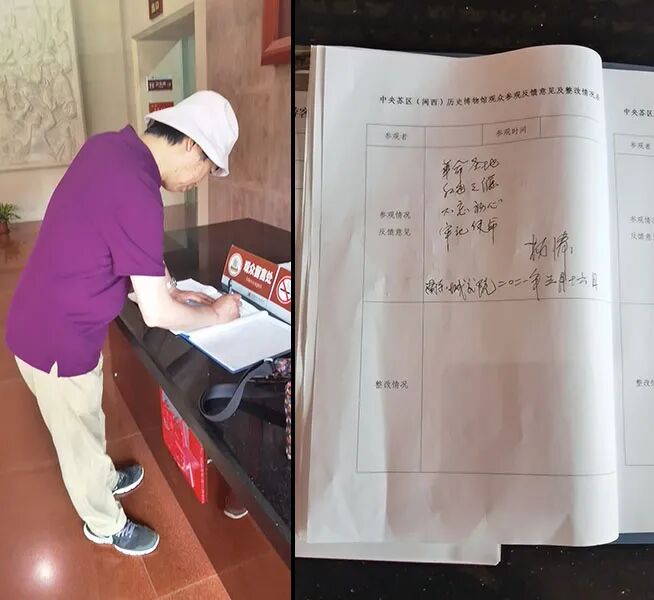 观众留言处
中央苏区（闽西）历史博物馆观众参观反馈意见及整改情况表
参观者
参观时间
参观情况
反馈意见
革命圣地
红色之源
不忘初心
牢记使命
二〇二一年五月十六日
整改情况
中央苏
参观者
参观情况
反馈意见
整改情